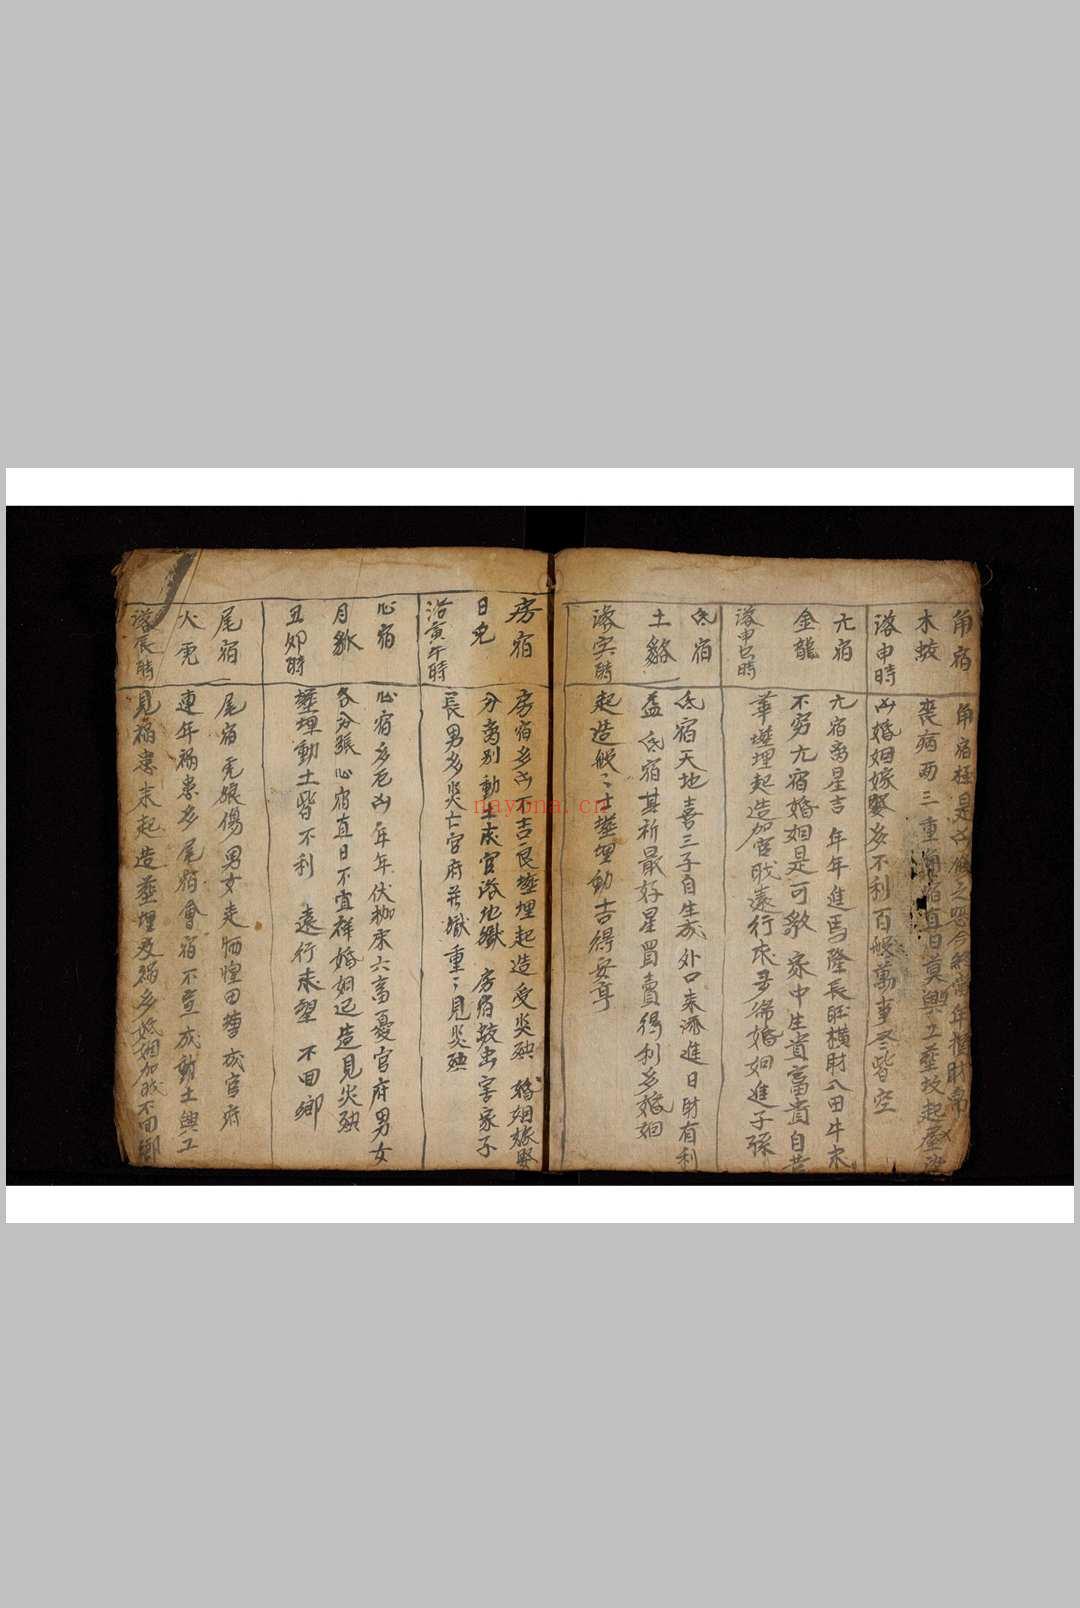 角宿
木蛟
落申時
角宿極是凶
喪病兩三重角宿直日莫興工葬坟起屋
凶婚姻嫁娶多不利百般萬事尽皆空
亢宿
金龍
落申巳時
亢宿离星吉年年進馬隆長旺橫財八田牛
不穷亢宿婚姻是可歌家中生貴富貴自
華塟埋起造加官戝遠行求婚姻進子孫
氐宿
土貉
落亥時
氐宿天地喜三子自生成外口来添進日財有利
益氐宿其祈最好星買賣得利多婚姻
起造般〻士塟埋動吉得安亨
房宿
日兔
落寅午時
房宿多凶不吉良塟埋起造受災殃婚姻嫁娶
分离别動土成官落地獄房宿蛟虫害家子
長男多災亡官府茫獄重〻見災殃
心宿
月狐
丑卯時
心宿多厄凶年年伏枷来六畜憂官府男女
各分張心宿直日不宜祥婚姻起造見災殃
塟埋動土皆不利 遠行未望 不回鄉
尾宿
火虎
落辰時
尾宿虎狼傷男女走惶田蚕成官府
連年禍患多尾宿會宿不宜成動土興工
見禍患未起造塟埋及禍多婚姻加戝不回鄉
nayona.cn